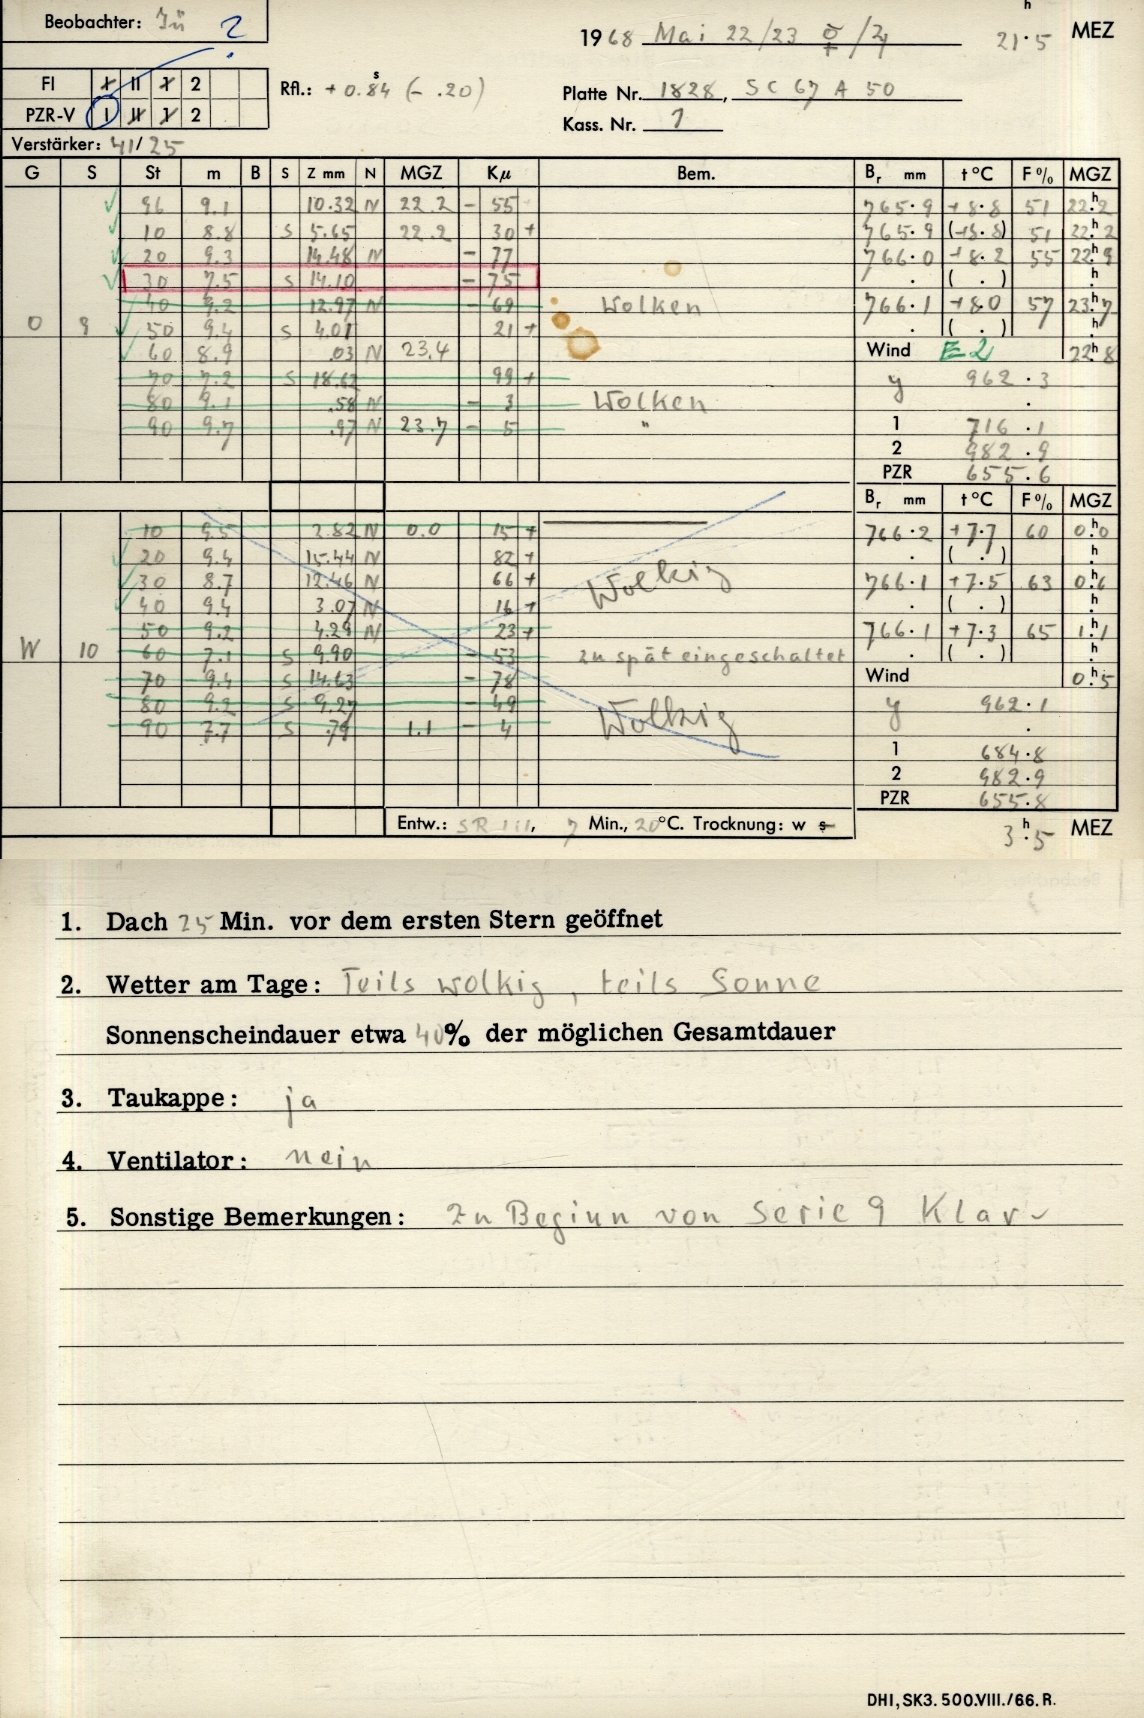 Beobachter: Jü ?
1968 Mai 22/23 ☿/♃ 21.5 h MEZ
Fl I II 1 2
PZR-V I II 1 2
Rfl.: + 0.84 s (- .20)
Platte Nr. 1828, SC 67 A 50
Kass. Nr. 1
Verstärker: 41/25
G S St m B S Z mm N MGZ Kμ Bem. Br mm t °C F % MGZ
96 9.1 10.32 N 22.2 - 55 765.9 +8.8 51 22.2 h
10 8.8 S 5.65 22.2 30 + 765.9 (+8.8) 51 22.2 h
20 9.3 14.48 N - 77 766.0 +8.2 55 22.9 h
30 7.5 S 14.10 - 75 . ( . ) . h
40 9.2 12.97 N - 69 Wolken 766.1 +8.0 57 23.7 h
O 9 50 9.4 S 4.01 21 + . ( . ) . h
60 8.9 .03 N 23.4 Wind E 2 22.8 h
70 7.2 S 18.62 99 + y 962.3
80 9.1 .58 N - 3 Wolken .
90 9.7 .97 N 23.7 - 5 " 1 716.1
2 982.9
PZR 655.6
Br mm t °C F % MGZ
10 9.5 2.82 N 0.0 15 + 766.2 +7.7 60 0.0 h
20 9.4 15.44 N 82 + . ( . ) . h
30 8.7 12.46 N 66 + Wolkig 766.1 +7.5 63 0.6 h
40 9.4 3.07 N 16 + . ( . ) . h
50 9.2 4.29 N 23 + 766.1 +7.3 65 1.1 h
W 10 60 7.1 S 9.90 - 53 zu spät eingeschaltet . ( . ) . h
70 9.4 S 14.63 - 78 Wind 0.5 h
80 9.2 S 9.27 - 49 Wolkig y 962.1
90 7.7 S .79 1.1 - 4 .
1 684.8
2 982.9
PZR 655.8
Entw.: SR III, 7 Min., 20°C. Trocknung: w s
3.5 h MEZ
1. Dach 25 Min. vor dem ersten Stern geöffnet
2. Wetter am Tage: Teils wolkig, teils Sonne
Sonnenscheindauer etwa 40% der möglichen Gesamtdauer
3. Taukappe: ja
4. Ventilator: nein
5. Sonstige Bemerkungen: Zu Beginn von Serie 9 Klar
DHI, SK3. 500.VIII./66. R.